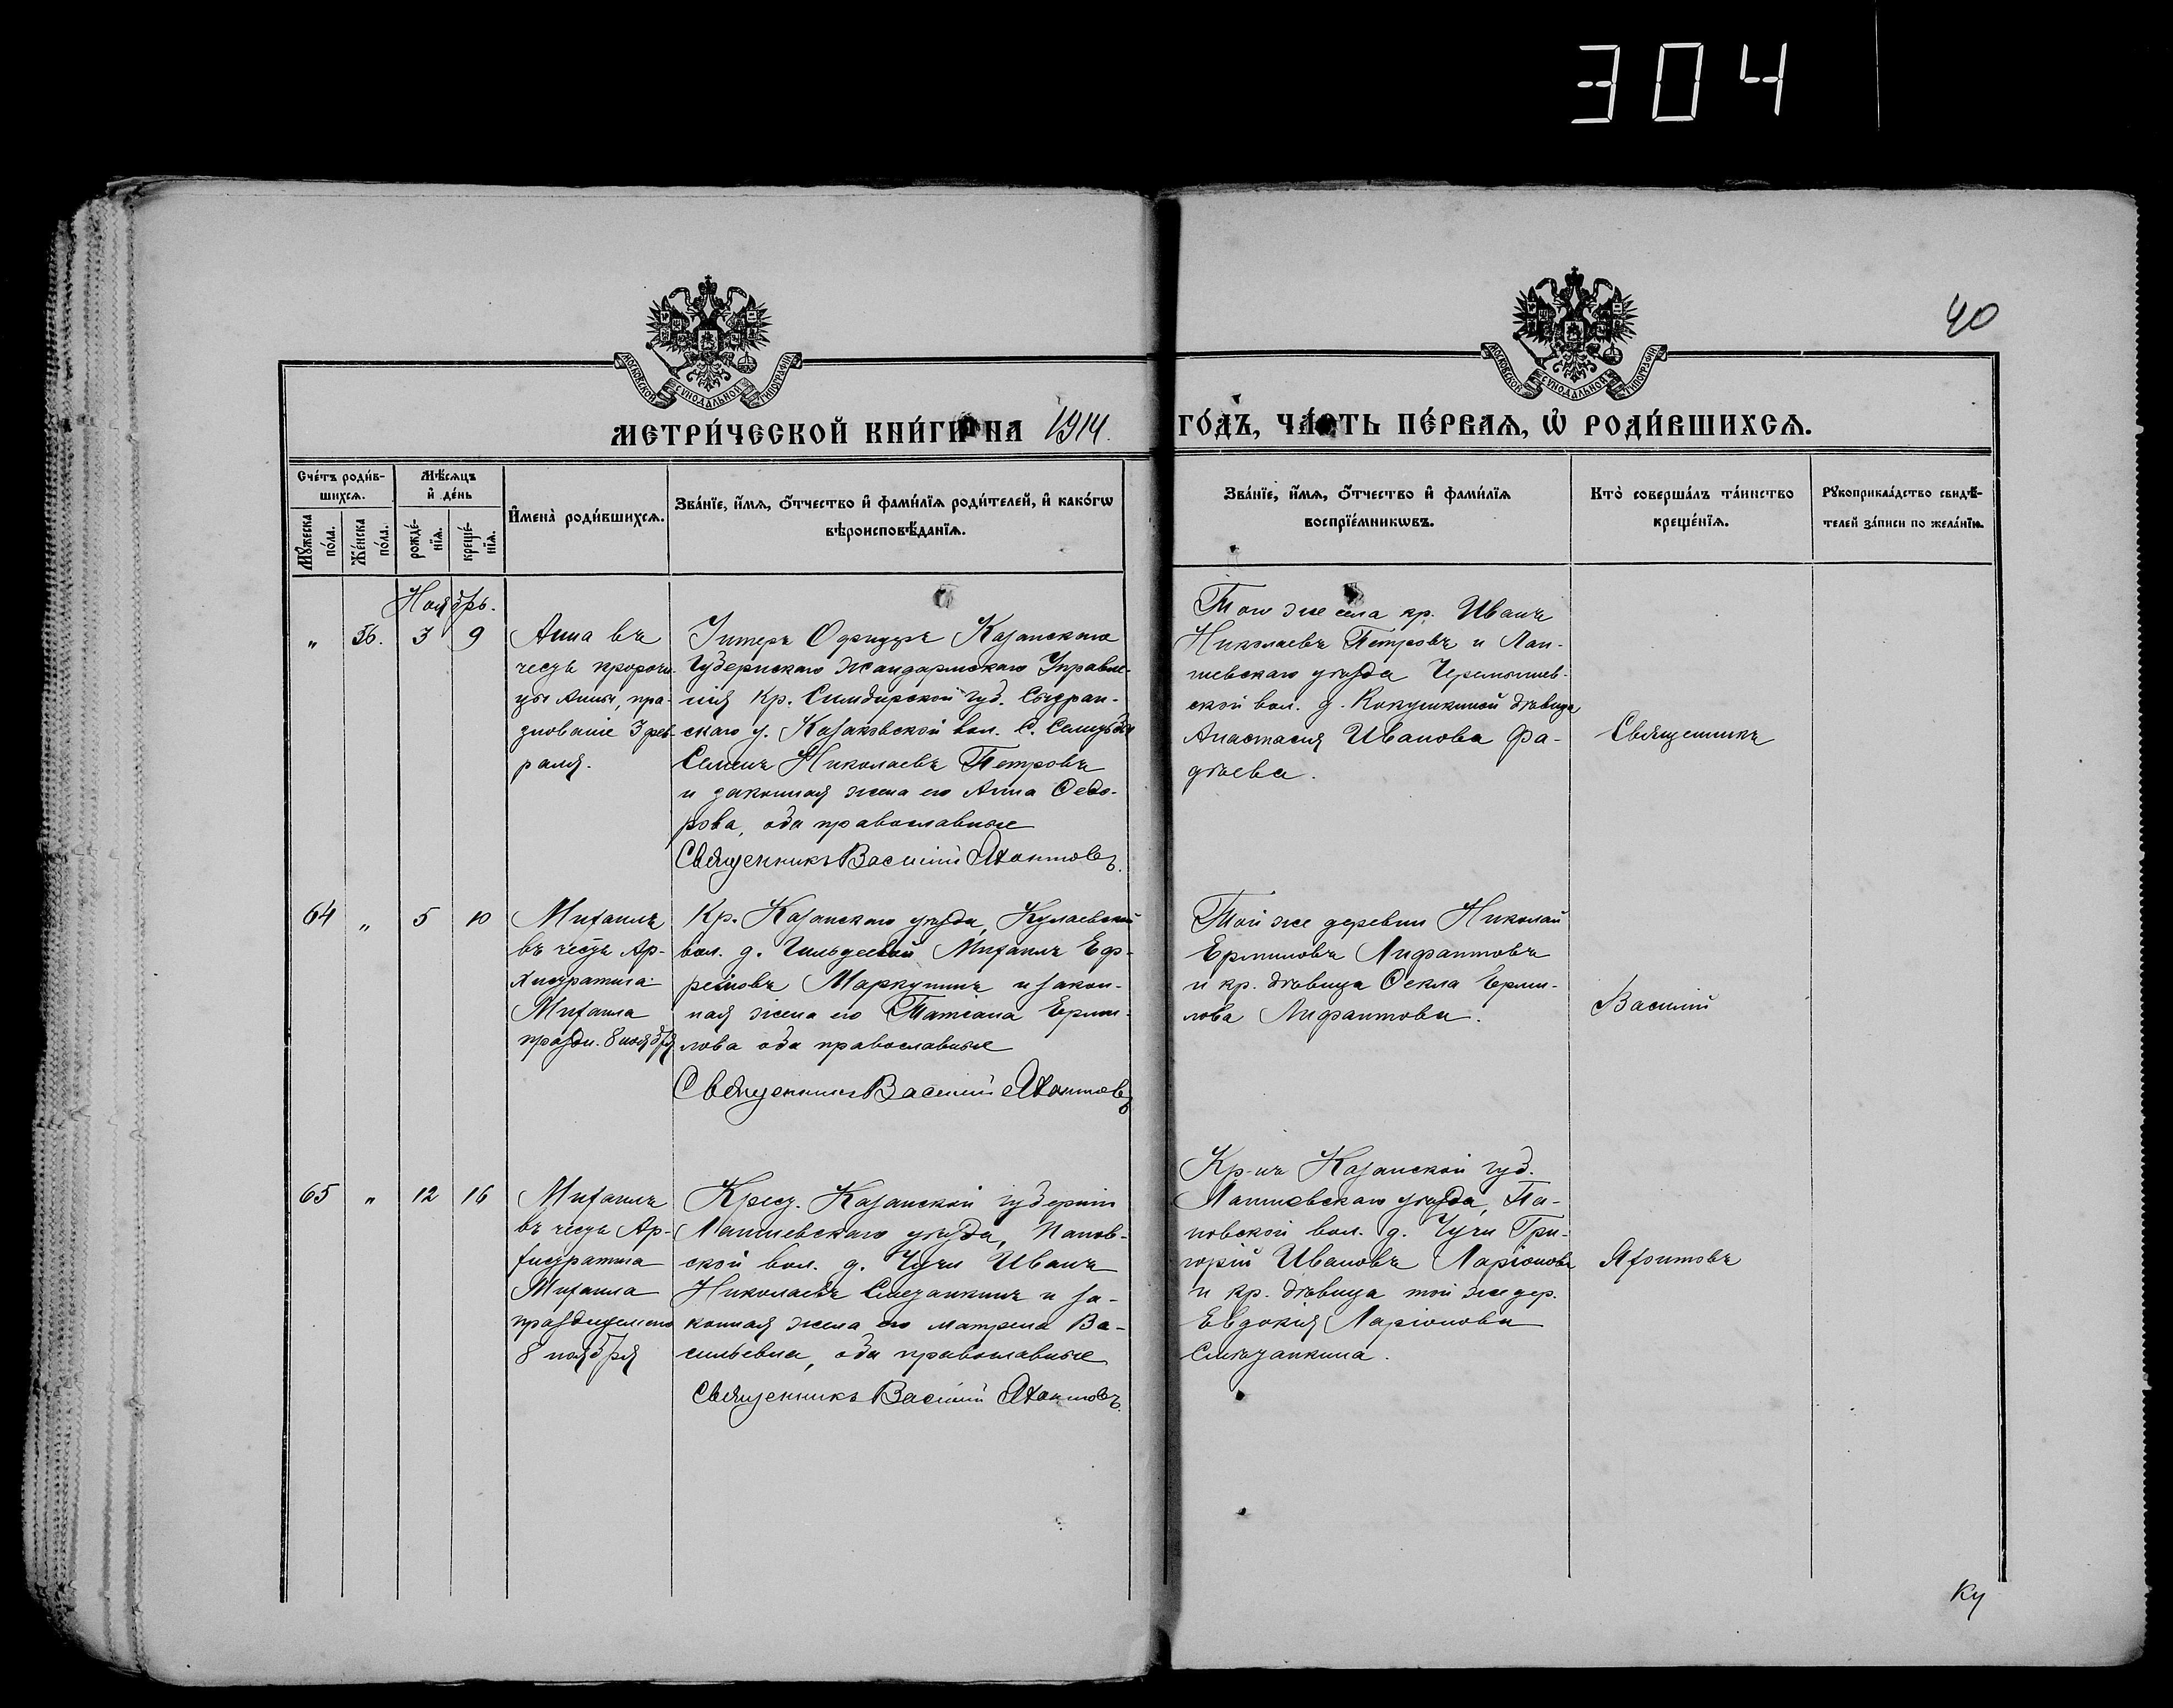 304
40
МОСКОВСКОЙ СѴНОДАЛЬНОЙ ТИПОГРАФІИ
МОСКОВСКОЙ СѴНОДАЛЬНОЙ ТИПОГРАФІИ
МЕТРИ́ЧЕСКОЙ КНИ́ГИ НА 1914. ГО́ДЪ, ЧА́СТЬ ПЕ́РВАѦ, Ѡ҆ РОДИ́ВШИХСѦ.
Сче́тъ роди́в-
шихсѧ.
Мѹ́жеска по́ла.
Же́нска по́ла.
Мѣ́сѧцъ
и҆ де́нь
рожде́-
нїѧ.
креще́-
нїѧ.
И҆мена̀ роди́вшихсѧ.
Зва́нїе, и҆́мѧ, ѻ҆́тчество и҆ фами́лїѧ роди́телей, и҆ како́гѡ
вѣроисповѣ́данїѧ.
Зва́нїе, и҆́мѧ, ѻ҆́тчество и҆ фами́лїѧ
воспрїе́мникѡвъ.
Кто̀ соверша́лъ та́инство
креще́нїѧ.
Рѹкоприкла́дство свидѣ́-
телей за́писи по жела́нїю.
Ноябрь.
„ 56. 3 9
Анна въ
честь пророчи-
цы Анны, пра-
зднованіе 3 фев-
раля.
Унтеръ Офицеръ Казанскаго
Губернскаго Жандармскаго Управле-
нія Кр. Симбирской губ. Сызран-
скаго у. Казаковской вол. С.
Семенъ Николаевъ Петровъ
и законная жена его Анна Ѳедо-
рова, оба православные
Священникъ Василій Яхонтовъ.
Того же села кр. Иванъ
Николаевъ Петровъ и Лаи-
шевскаго уѣзда Черемышев-
ской вол. д. Кокушкиной дѣвица
Анастасія Иванова Фа-
дѣева.
Священникъ
64 „ 5 10
Михаилъ
въ честь Ар-
хистратига
Михаила
праздн. 8 ноября
Кр. Казанскаго уѣзда, Кулаевской
вол. д. Гильдеевой Михаилъ Еф-
ремовъ Маркушинъ и закон-
ная жена его Татіана Ерми-
лова оба православные
Священникъ Василій Яхонтовъ
Той же деревни Николай
Ермиловъ Лифантовъ
и кр. дѣвица Ѳекла Ерми-
лова Лифантова.
Василій
65 „ 12 16
Михаилъ
въ честь Ар-
хистратига
Михаила
празднуемаго
8 ноября
Крест. Казанской губерніи
Лаишевскаго уѣзда, Панов-
ской вол. д. Чучи Иванъ
Николаевъ Сметанкинъ и за-
конная жена его Матрена Ва-
сильевна, оба православные
Священникъ Василій Яхонтовъ.
Кр-нъ Казанской губ.
Лаишевскаго уѣзда, Па-
новской вол. д. Чучи Гри-
горій Ивановъ Ларіоновъ
и кр. дѣвица той же дер.
Евдокія Ларіонова
Смѣтанкина.
Яхонтовъ
Ку